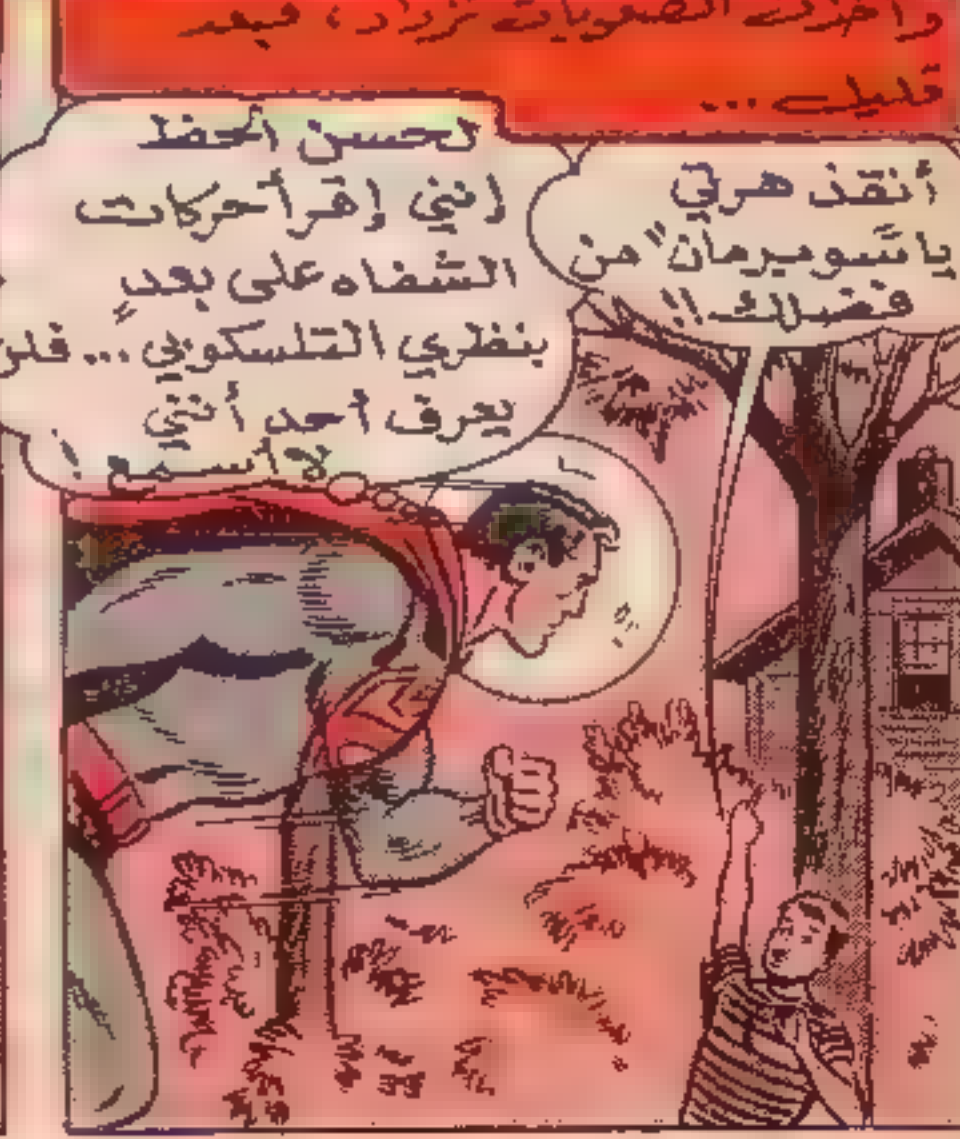 وأخذت الصعوبات تزداد، فبعد
قليل ...
أنقذ هرتي
يا "سوبرمان" من
فضلك !!
لحسن الحظ
إنني إقرأ حركات
الشفاه على بعدٍ
بنظري التلسكوبي ... فلن
يعرف أحد أنني
لا أسمع !